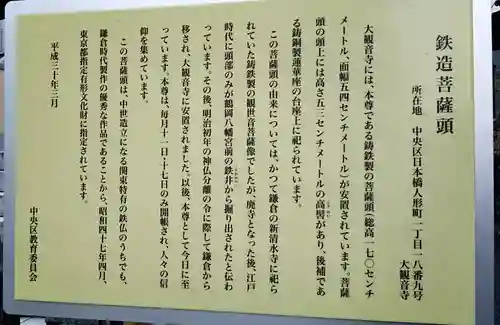 鉄造菩薩頭
所在地 中央区日本橋人形町一丁目一八番九号
大観音寺
大観音寺には、本尊である鋳鉄製の菩薩頭(総高一七〇センチ
メートル、面幅五四センチメートル)が安置されています。菩薩
頭の頭上には高さ五三センチメートルの高髻があり、後補であ
る鋳銅製蓮華座の台座上に祀られています。
この菩薩頭の由来については、かつて鎌倉の新清水寺に祀ら
れていた鋳鉄製の観世音菩薩像でしたが、廃寺となった後、江戸
時代に頭部のみが鶴岡八幡宮前の鉄井から掘り出されたと伝わ
っています。その後、明治初年の神仏分離の令に際して鎌倉から
移され、大観音寺に安置されました。以後、本尊として今日に至
っています。本尊は、毎月十一日・十七日のみ開帳され、人々の信
仰を集めています。
この菩薩頭は、中世造立になる関東特有の鉄仏のうちでも、
鎌倉時代製作の優秀な作品であることから、昭和四十七年四月、
東京都指定有形文化財に指定されています。
平成三十年三月
中央区教育委員会